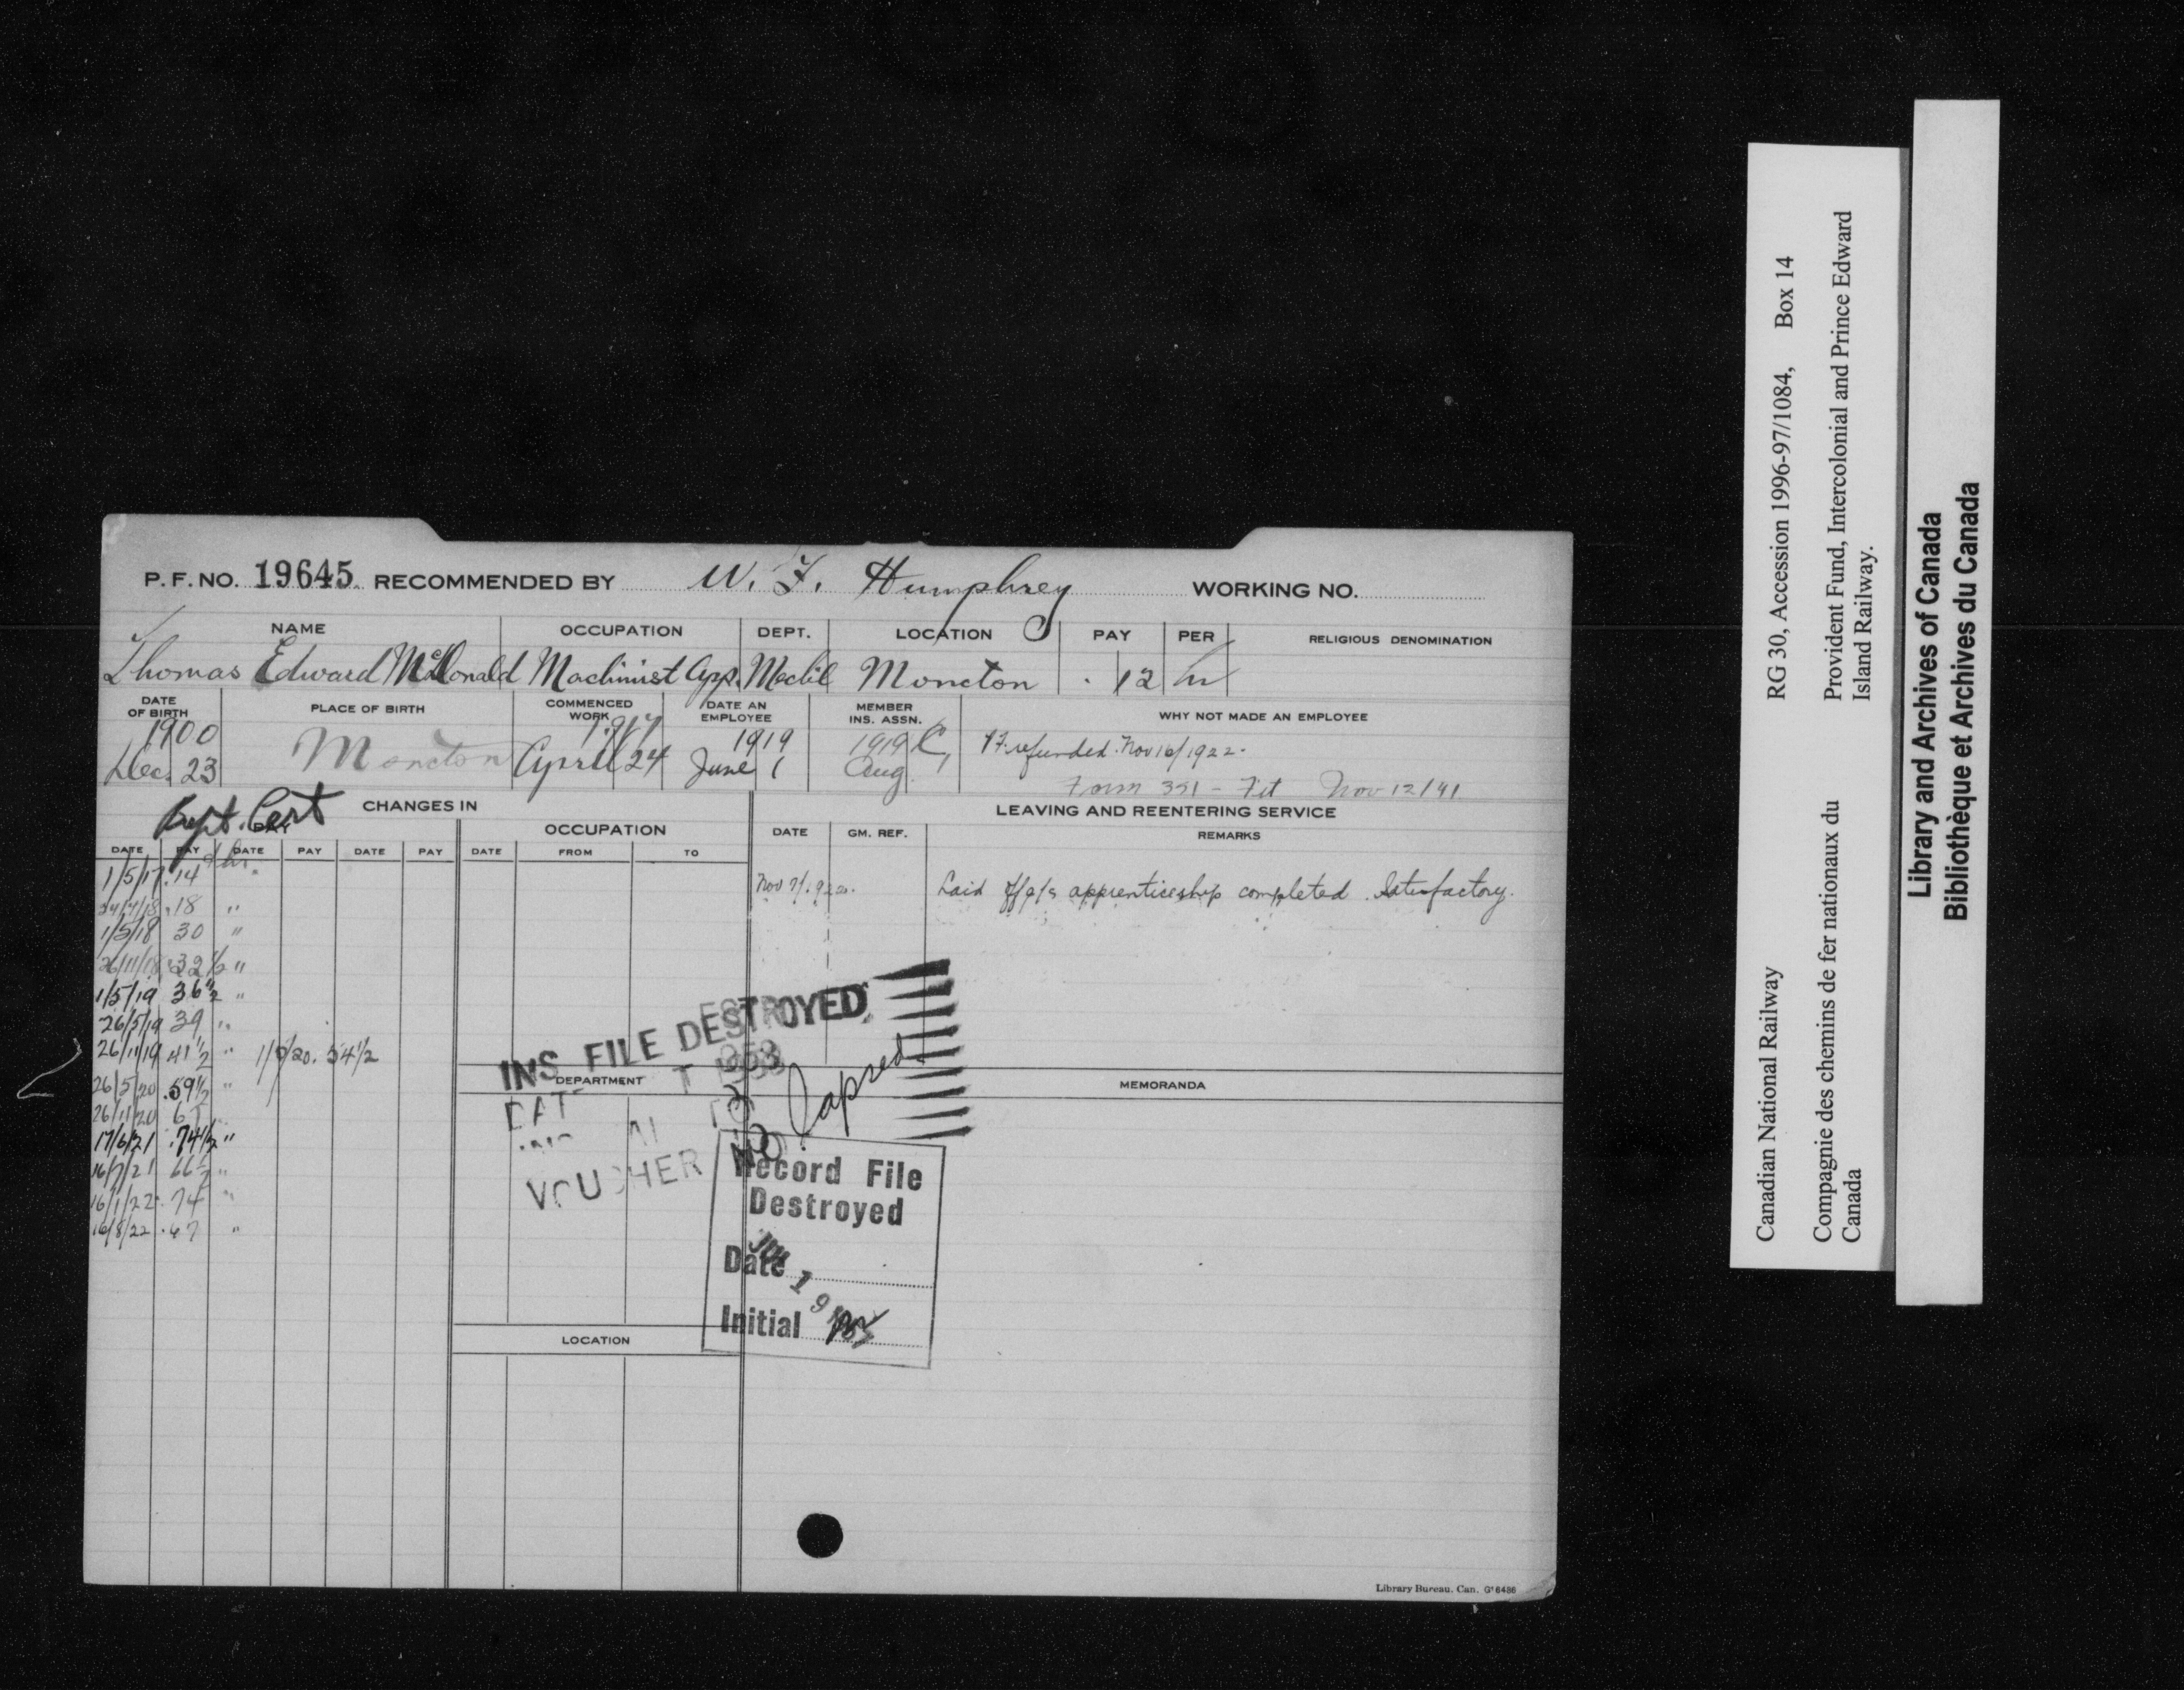 P. F. NO. 19645 RECOMMENDED BY W. F. Humphrey WORKING NO.
NAME OCCUPATION DEPT. LOCATION PAY PER RELIGIOUS DENOMINATION
Thomas Edward McDonald Machinist App. Mechl Moncton .12 hr
DATE OF BIRTH PLACE OF BIRTH COMMENCED WORK DATE AN EMPLOYEE MEMBER INS. ASSN. WHY NOT MADE AN EMPLOYEE
1900 1917 1919 1919 C
Dec. 23 Moncton April 24 June 1 Aug.
P.F. refunded Nov 16/1922.
Form 351 - Fit Nov 12/41
CHANGES IN
LEAVING AND REENTERING SERVICE
Cert
PAY
OCCUPATION
DATE GM. REF. REMARKS
DATE PAY DATE PAY DATE PAY DATE FROM TO
1/5/17 .14 hr.
Nov 7/1922. Laid off a/c apprenticeship completed. Satisfactory.
24/4/18 .18 "
1/5/18 30 "
26/11/18 .32 1/2 "
1/5/19 36 1/2 "
26/5/19 39 "
26/11/19 41 1/2 " 1/5/20. 54 1/2
26/5/20 .59 1/2 "
26/11/20
17/6/21 .74 1/2 "
16/7/21 66 1/2 "
16/1/22 .74 "
16/8/22 .67 "
INS FILE DESTROYED
DEPARTMENT
MEMORANDA
Lapsed
VOUCHER NO
Record File
Destroyed
Date
Initial
LOCATION
Library Bureau. Can. G16486
Canadian National Railway RG 30, Accession 1996-97/1084, Box 14
Compagnie des chemins de fer nationaux du Canada
Provident Fund, Intercolonial and Prince Edward Island Railway.
Library and Archives of Canada
Bibliothèque et Archives du Canada